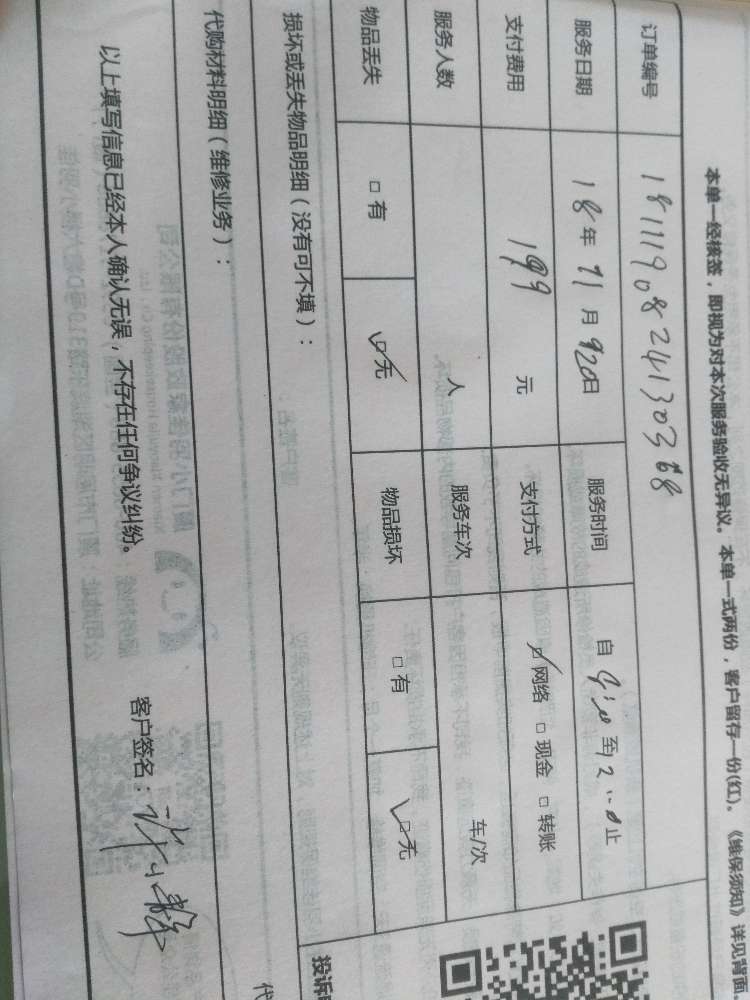 本单一经核签，即视为对本次服务验收无异议。本单一式两份，客户留存一份(红)。《维保须知》详见背面
订单编号 1811190824130368
服务日期 18年 11月 20日 服务时间 自 9:00 至 12:00 止
支付费用 199 元 支付方式 ☑网络 □现金 □转账
服务人数 人 服务车次 车/次
物品丢失 □有 ☑无 物品损坏 □有 ☑无
损坏或丢失物品明细（没有可不填）：
投诉
代购材料明细（维修业务）：
代
以上填写信息已经本人确认无误，不存在任何争议纠纷。 客户签名：